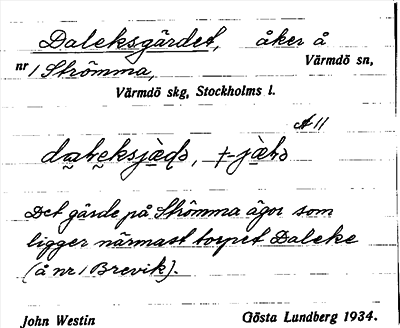 Daleksgärdet, åker å
nr 1 Strömma, Värmdö sn,
Värmdö skg, Stockholms l.
A 11
Det gärde på Strömma ägor som
ligger närmast torpet Daleke
(å nr 1 Brevik).
John Westin Gösta Lundberg 1934.